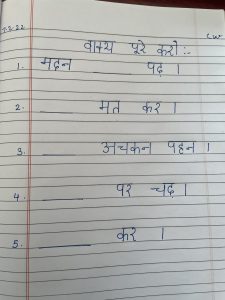 7.5.22 CW
वाक्य पूरे करो :-
1. मदन ______ पढ़ ।
2. ______ मत कर ।
3. ______ अचकन पहन ।
4. ______ पर चढ़ ।
5. ______ कर ।